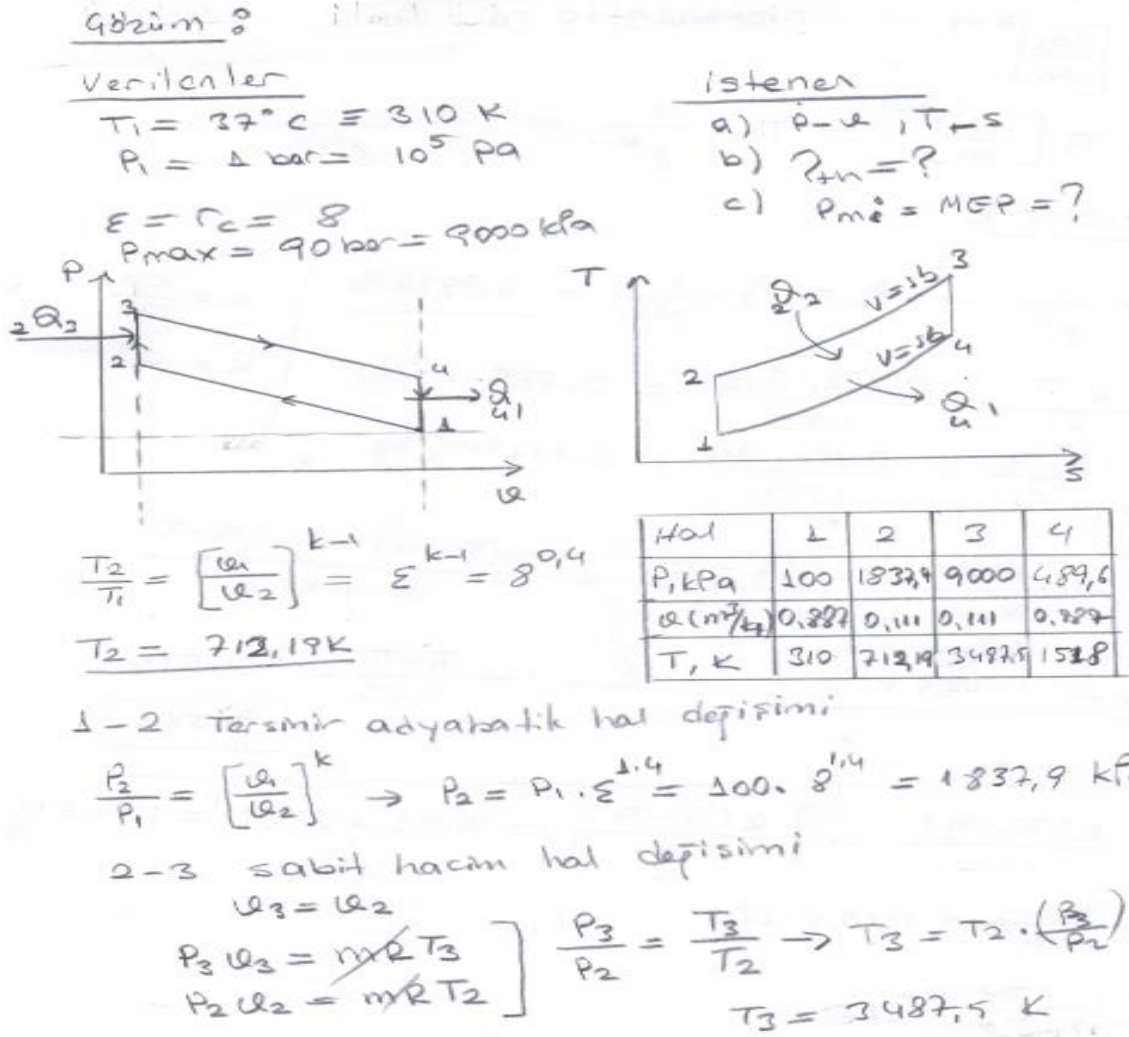 Çözüm :
Verilenler
T₁ = 37°C ≡ 310 K
P₁ = 1 bar = 10⁵ Pa
ε = rc = 8
Pmax = 90 bar = 9000 kPa
istenen
a) P-v , T-s
b) ηth = ?
c) Pmi = MEP = ?
P
3
₂Q₃
2
4
₄Q₁
1
v
T
3
₂Q₃
v=sb
v=sb
4
2
₄Q₁
1
s
T₂/T₁ = [v₁/v₂]^(k-1) = ε^(k-1) = 8^0,4
T₂ = 712,19K
Hal 1 2 3 4
P, kPa 100 1837,9 9000 489,6
v (m³/kg) 0,887 0,111 0,111 0,887
T, K 310 712,19 3487,5 1518
1-2 Tersinir adyabatik hal değişimi
P₂/P₁ = [v₁/v₂]^k → P₂ = P₁ . ε^1.4 = 100. 8^1,4 = 1837,9 kP
2-3 sabit hacim hal değişimi
v₃ = v₂
P₃ v₃ = mR T₃
P₂ v₂ = mR T₂
] P₃/P₂ = T₃/T₂ → T₃ = T₂ . (P₃/P₂)
T₃ = 3487,5 K